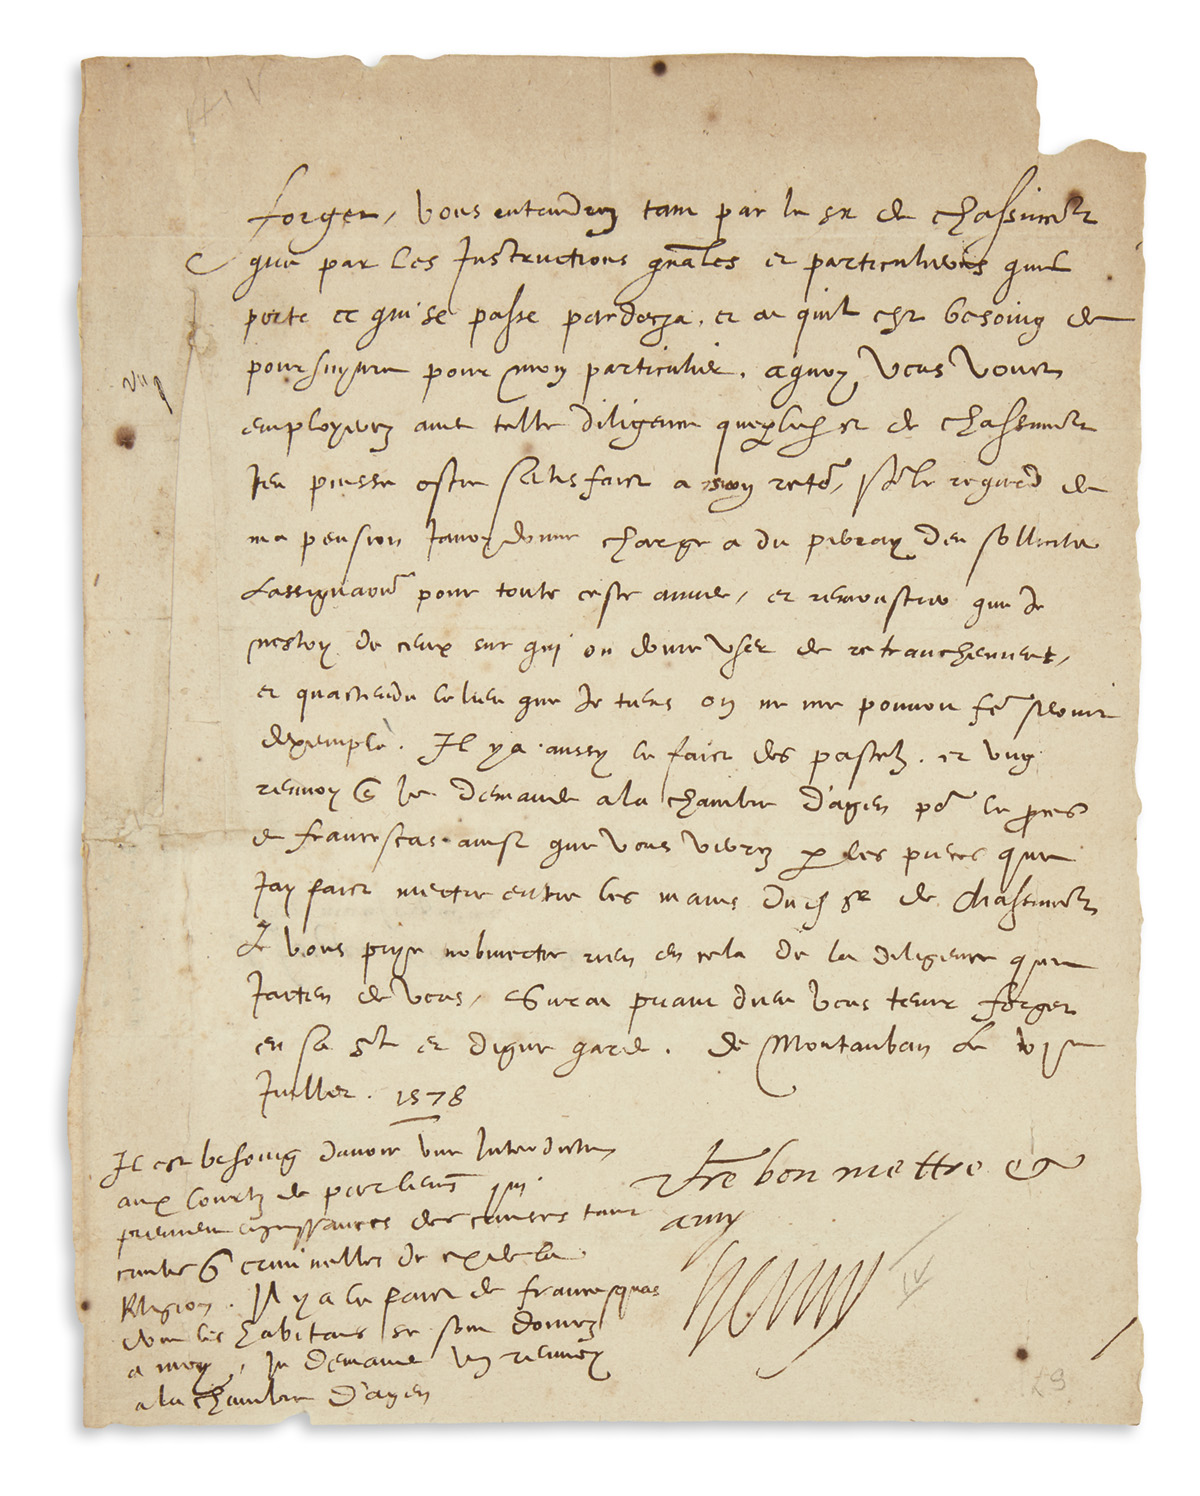 forger, vous entendrez tant par le sr de chassincourt
que par les Instructions gnales et particulieres quil
porte ce qui se passe pardeca. et ce quil est besoing de
poursuyvre pour mon particulier. aquoy vous vous
employerez avec telle diligence que led sr de chassincourt
Jen puisse estre satisfaict a son reto, Po le regard de
ma pension Javoy donne charge a du pin de sollicite
Lassignaon pour toute ceste annee, et remonstrer que Je
nestoy de ceux sur qui on doive user de retranchement,
et quactendu le lieu que Je tiens on ne me pouvoit fe servir
dexemple. Il y a aussy le faict des pastelz. et ung
renvoy que Je demande a la chambre dagen po le proces
de francescas ainsi que vous verrez p les pieces que
Jay faict mectre entre les mains dud sr de chassincourt
Je vous prye nobmectre rien en cela de la diligence que
Jacten de vous, Sur ce priant dieu vous tenir forger
en sa ste et digne garde. de Montauban le
Juillet. 1578
Il est besoing davoir une Interdiction
aux Courtz de parlemens qui
prennent congnoissances des causes tant
civiles que criminelles de ceux de la
Religion. Il y a le faict de francesquas
dont les habitans se sont donnez
a moy, Je demande un renvoy
a la chambre dagen
vtre bon mettre et
amy
Henry
IV